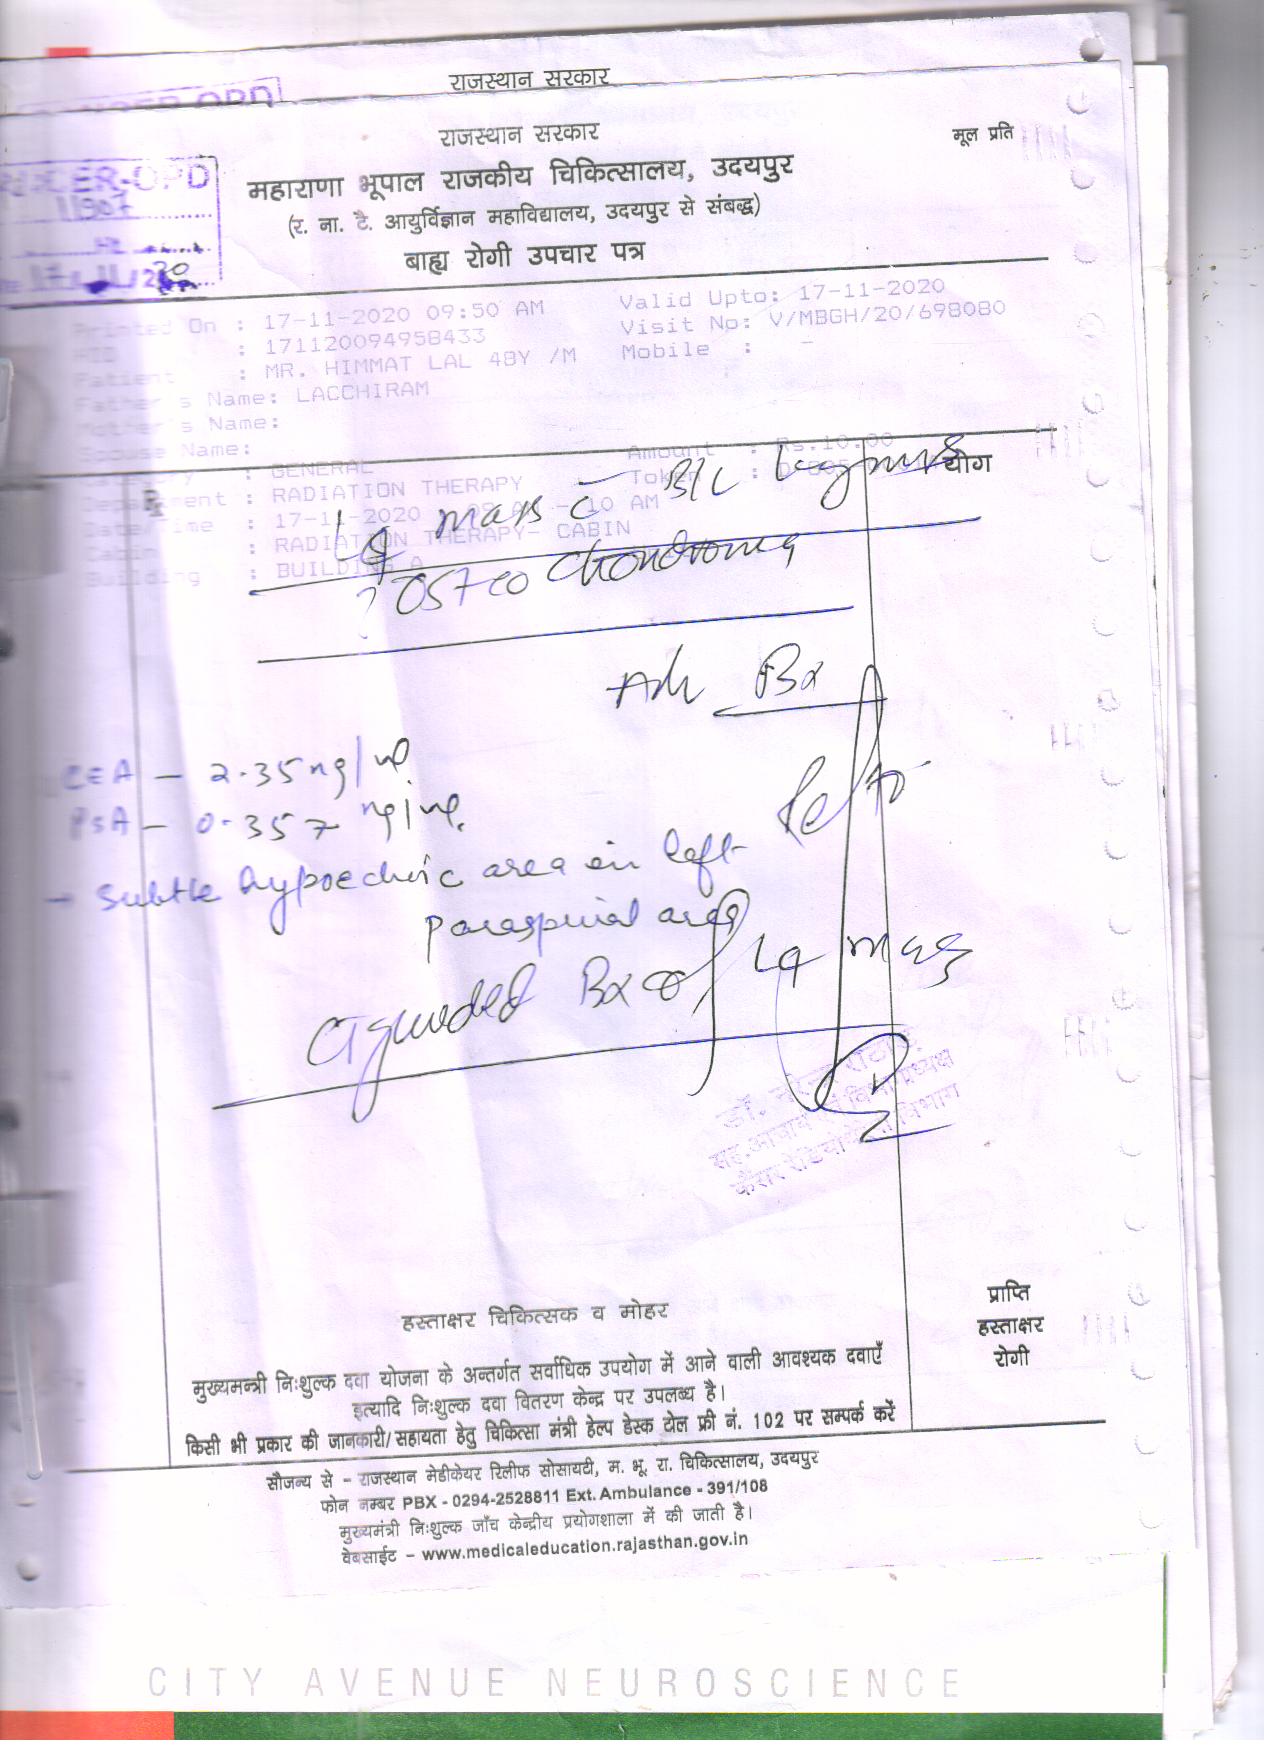 राजस्थान सरकार
राजस्थान सरकार
मूल प्रति
महाराणा भूपाल राजकीय चिकित्सालय, उदयपुर
(र. ना. टै. आयुर्विज्ञान महाविद्यालय, उदयपुर से संबद्ध)
बाह्य रोगी उपचार पत्र
CER-OPD
11907
Printed On : 17-11-2020 09:50 AM Valid Upto: 17-11-2020
: 171120094958433 Visit No: V/MBGH/20/698080
Patient : MR. HIMMAT LAL 48Y /M Mobile : -
Father's Name: LACCHIRAM
Mother's Name:
Spouse Name:
: GENERAL Amount : Rs.10.00
Department : RADIATION THERAPY Token :
Date/Time : 17-11-2020 10 AM
Cabin : RADIATION THERAPY- CABIN
Building : BUILDING A
Rx
योग
mass c̄ B/L
? Osteochondroma
Adv Bx
CEA – 2.35 ng/ml.
PSA – 0.357 ng/ml.
→ Subtle hypoechoic area in left
paraspinal area
CT guided Bx of mass
हस्ताक्षर चिकित्सक व मोहर
प्राप्ति
हस्ताक्षर
रोगी
मुख्यमन्त्री निःशुल्क दवा योजना के अन्तर्गत सर्वाधिक उपयोग में आने वाली आवश्यक दवाएँ
इत्यादि निःशुल्क दवा वितरण केन्द्र पर उपलब्ध है।
किसी भी प्रकार की जानकारी/सहायता हेतु चिकित्सा मंत्री हेल्प डेस्क टोल फ्री नं. 102 पर सम्पर्क करें
सौजन्य से – राजस्थान मेडीकेयर रिलीफ सोसायटी, म. भू. रा. चिकित्सालय, उदयपुर
फोन नम्बर PBX - 0294-2528811 Ext. Ambulance - 391/108
मुख्यमंत्री निःशुल्क जाँच केन्द्रीय प्रयोगशाला में की जाती है।
वेबसाईट – www.medicaleducation.rajasthan.gov.in
CITY AVENUE NEUROSCIENCE